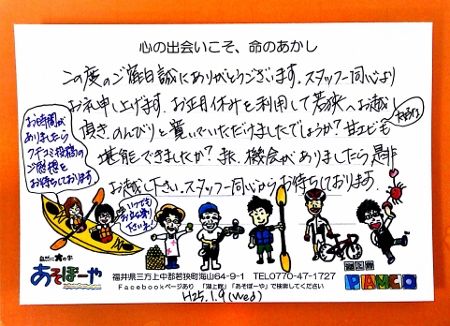 心の出会いこそ、命のあかし
この度のご宿泊誠にありがとうございます。スタッフ一同心より
お礼申し上げます。お正月休みを利用して若狭へお越し
頂き、のんびりと寛いでいただけましたでしょうか？甘エビも
堪能できましたか？又、機会がありましたら是非
お越し下さい。スタッフ一同心からお待ちしております。
お時間が
ありましたら
クチコミ投稿の
ご感想を
お待ちしております
いつでも
お立ち寄り
下さいネ。
あそぼーや
PIAMCO
福井県三方上中郡若狭町海山64-9-1 TEL0770-47-1727
Facebookページあり 「湖上館」「あそぼーや」で検索してください
H25.1.9(Wed)